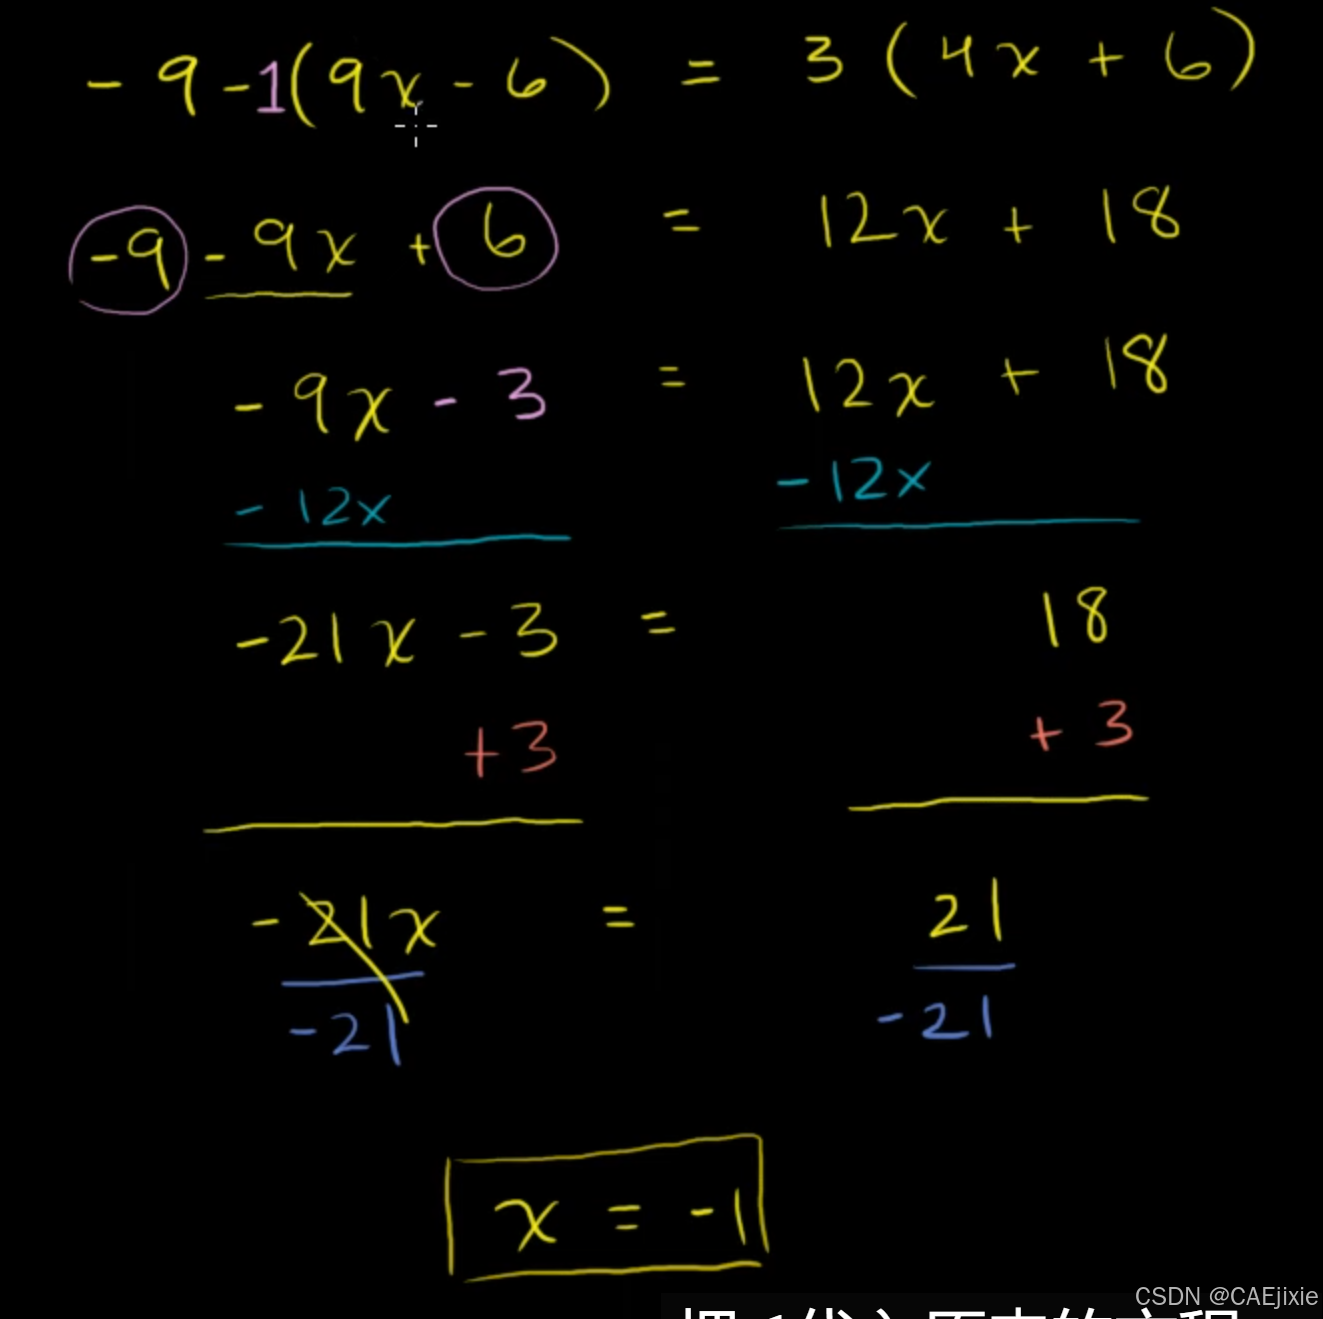 -9-1(9x-6) = 3(4x+6)
-9-9x+6 = 12x+18
-9x-3 = 12x+18
-12x -12x
-21x-3 = 18
+3 +3
-21x = 21
-21 -21
x = -1
CSDN @CAEjixie